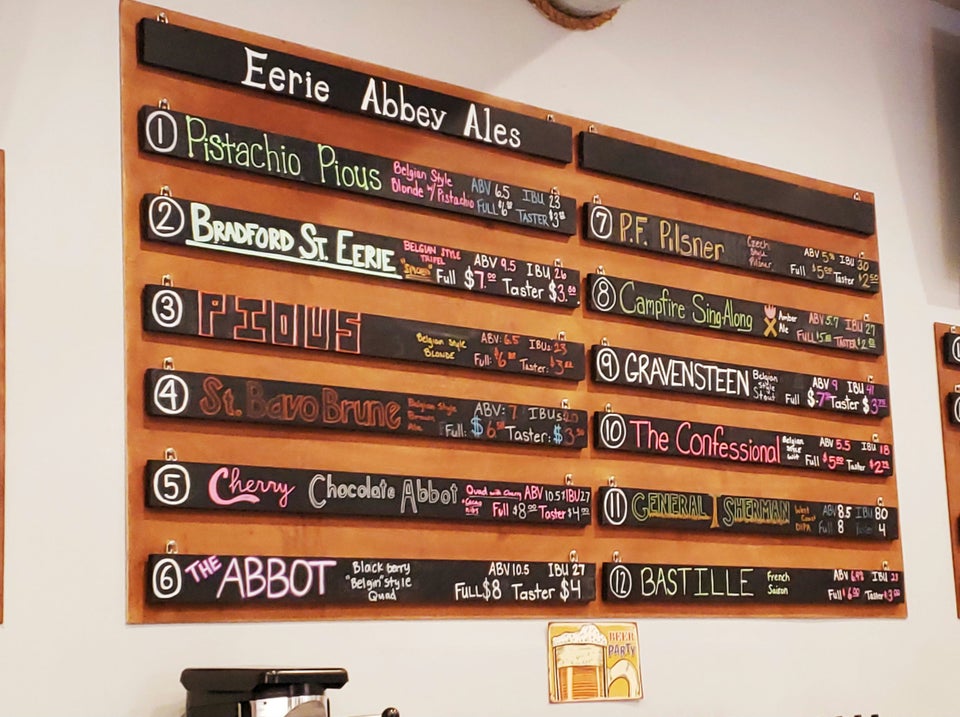 Eerie Abbey Ales
1 Pistachio Pious Belgian Style Blonde w/ Pistachio ABV 6.5 IBU 23
FULL $6 TASTER $3
2 BRADFORD ST. EERIE BELGIAN STYLE TRIPEL "SPICED" ABV 9.5 IBU 26
Full $7.00 Taster $3.50
3 PIOUS Belgian Style BLONDE ABV: 6.5 IBUs: 23
Full: $6 Taster: $3
4 St. Bavo Brune Belgian Style Brown Ale ABV: 7 IBUs: 20
Full: $6 Taster: $3
5 Cherry Chocolate Abbot Quad with Cherry + Cacao Nibs ABV 10.5% IBU 27
Full $8.00 Taster $4.00
6 THE ABBOT Blackberry "Belgin" style Quad ABV 10.5 IBU 27
FULL $8 Taster $4
7 P.F. Pilsner Czech Style Pilsner ABV 5% IBU 30
Full $5.00 Taster $2.50
8 Campfire Sing-Along Amber Ale ABV 5.7 IBU 27
FULL $5 TASTER $2
9 GRAVENSTEEN Belgian Style Stout ABV 9 IBU 41
Full $7 Taster $3
10 The Confessional Belgian Style Wit ABV 5.5 IBU 18
Full $5 Taster $2
11 GENERAL SHERMAN West Coast DIPA ABV 8.5 IBU 80
Full 8 Taster 4
12 BASTILLE French Saison ABV IBU
Full $6 Taster $3
BEER
PARTY